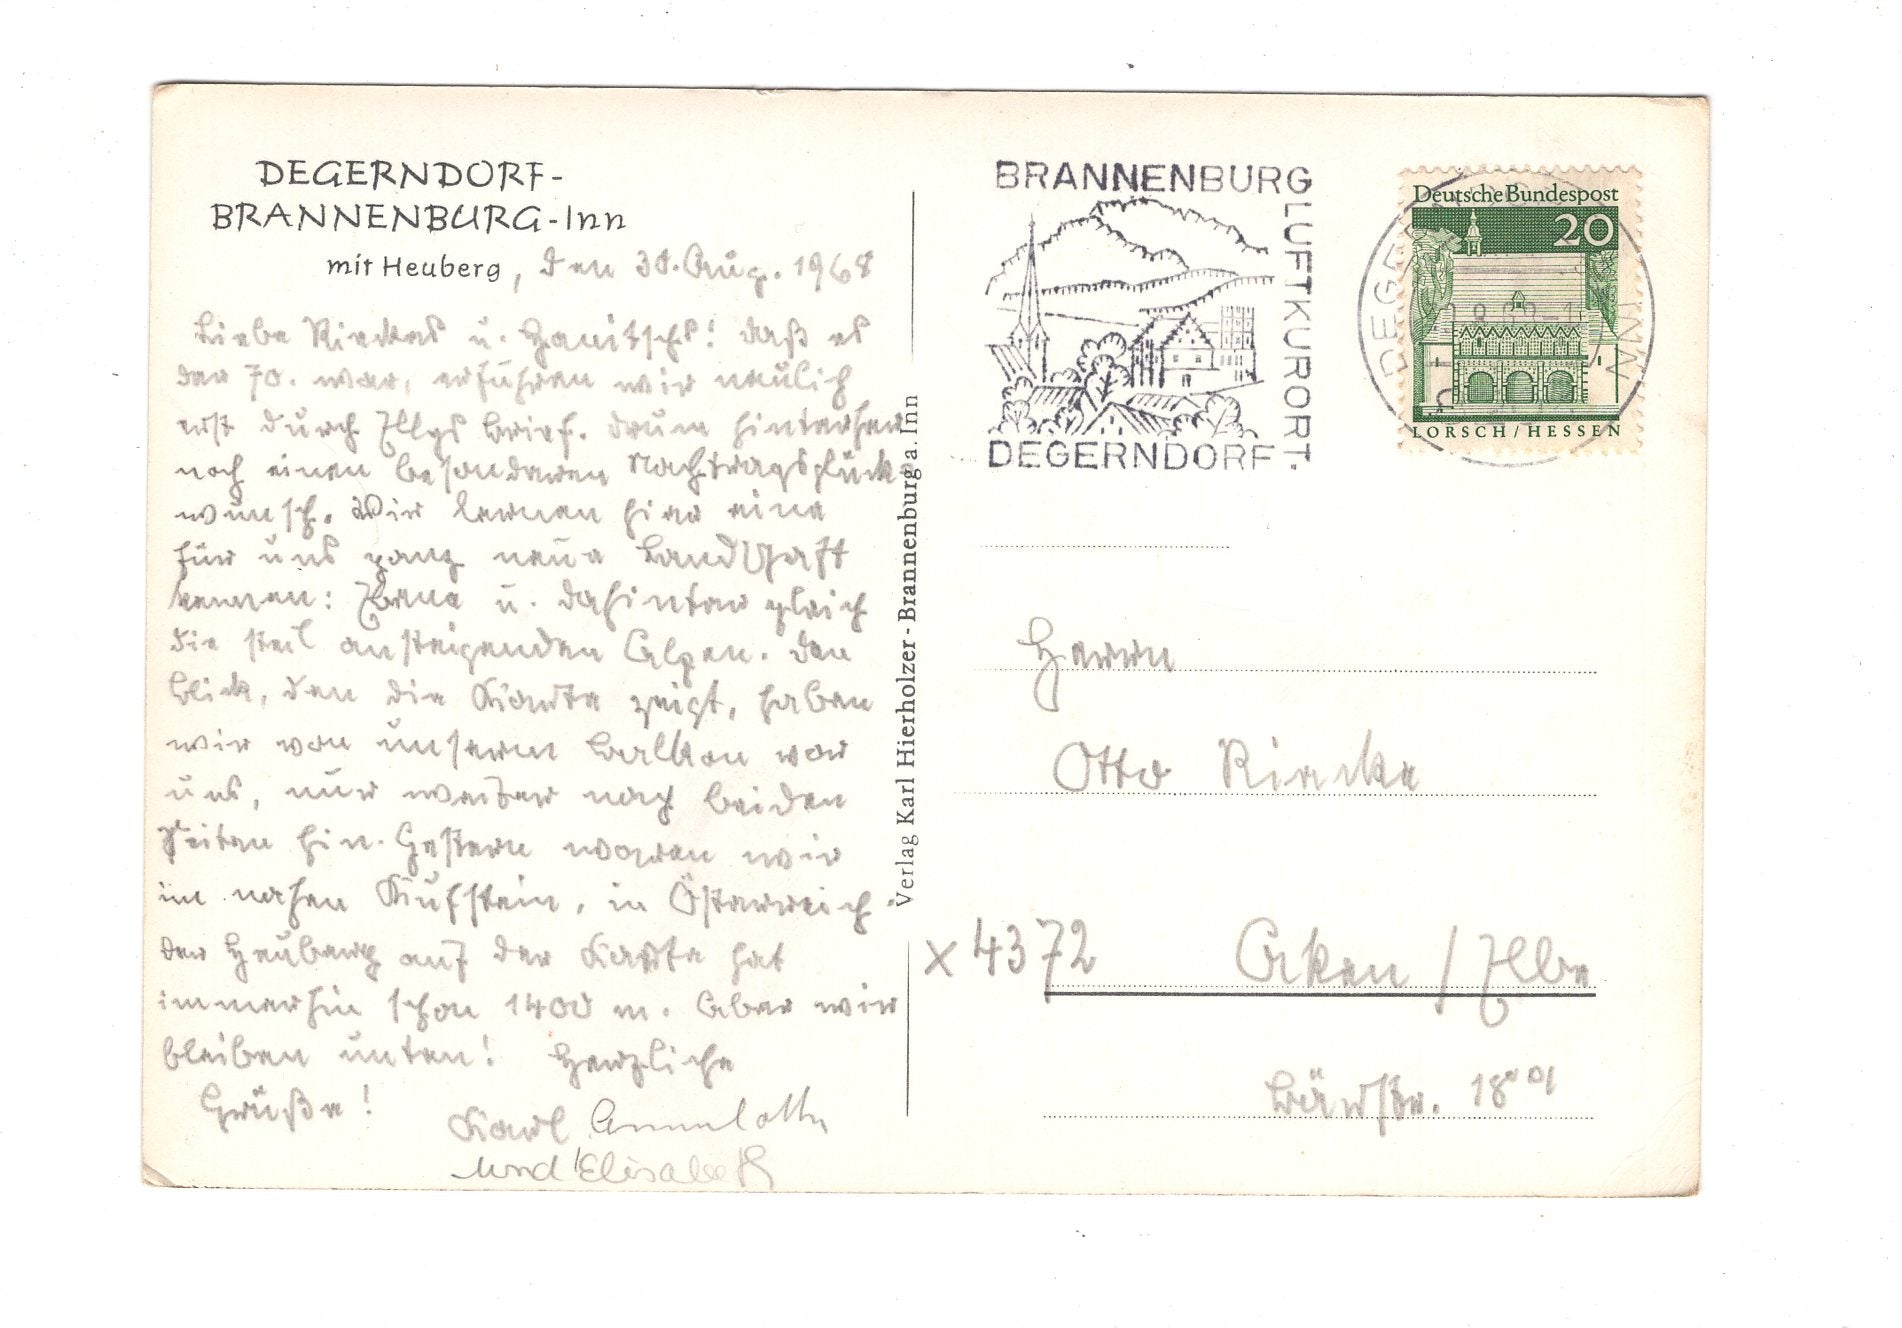 DEGERNDORF-
BRANNENBURG-Inn
mit Heuberg, den 30. Aug. 1968
Liebe Rieckes u. Hanitschs! Daß es
der 70. war, erfuhren wir neulich
erst durch Ellys Brief. Drum hinterher
noch einen besonderen Nachtragsglück-
wunsch. Wir lernen hier eine
für uns ganz neue Landschaft
kennen: Ebene u. dahinter gleich
die steil ansteigenden Alpen. Den
Blick, den die Karte zeigt, haben
wir von unserm Balkon vor
uns, nur weiter nach beiden
Seiten hin. Gestern waren wir
im nahen Kufstein, in Österreich.
Der Heuberg auf der Karte hat
immerhin schon 1400 m. Aber wir
bleiben unten! Herzliche
Grüße!
Karl Annelotte
und Elisabeth
Verlag Karl Hierholzer - Brannenburg a. Inn
BRANNENBURG
LUFTKURORT.
DEGERNDORF
Deutsche Bundespost
20
LORSCH/HESSEN
Herrn
Otto Riecke
x 4372 Aken / Elbe
Bärstr.